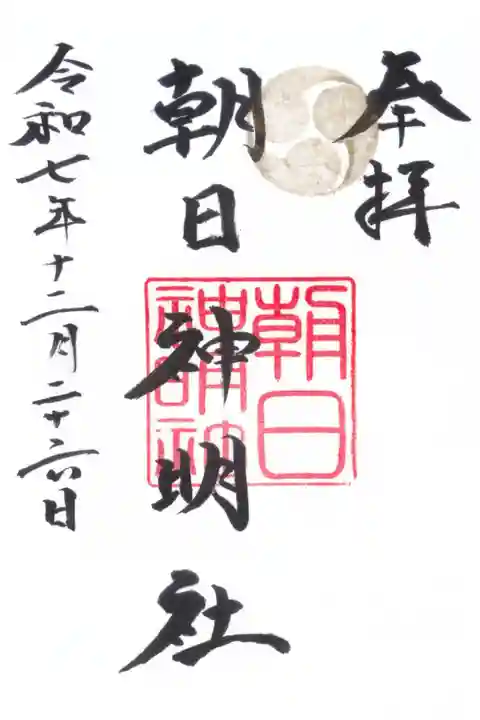 奉拝
朝日神明社
朝日
令和七年十二月二十六日